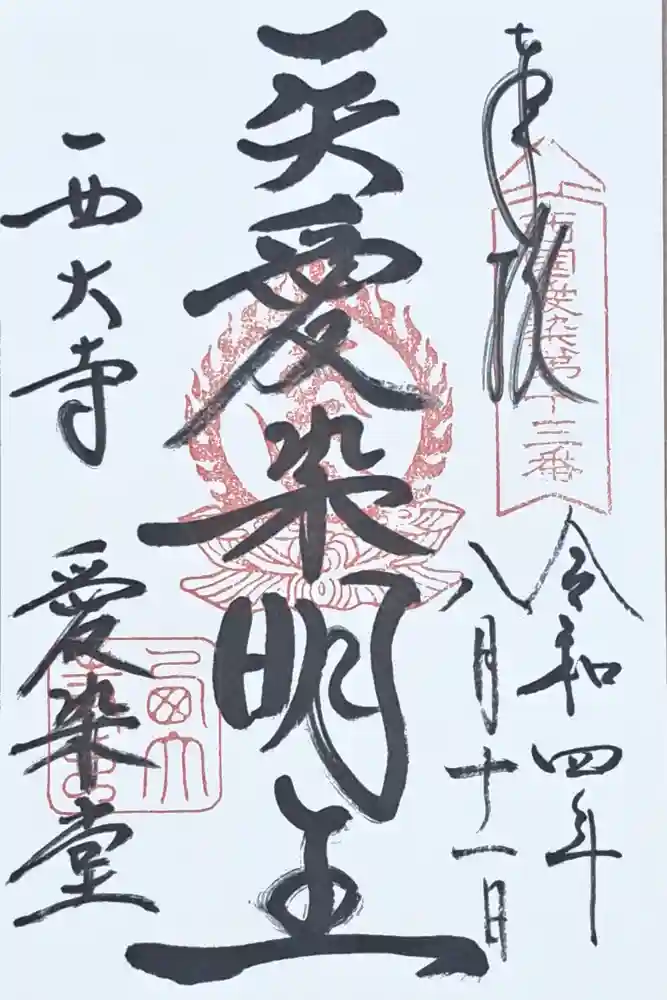 奉拝
西国愛染第十三番
令和四年
八月十一日
一矢愛染明王
西大寺 愛染堂